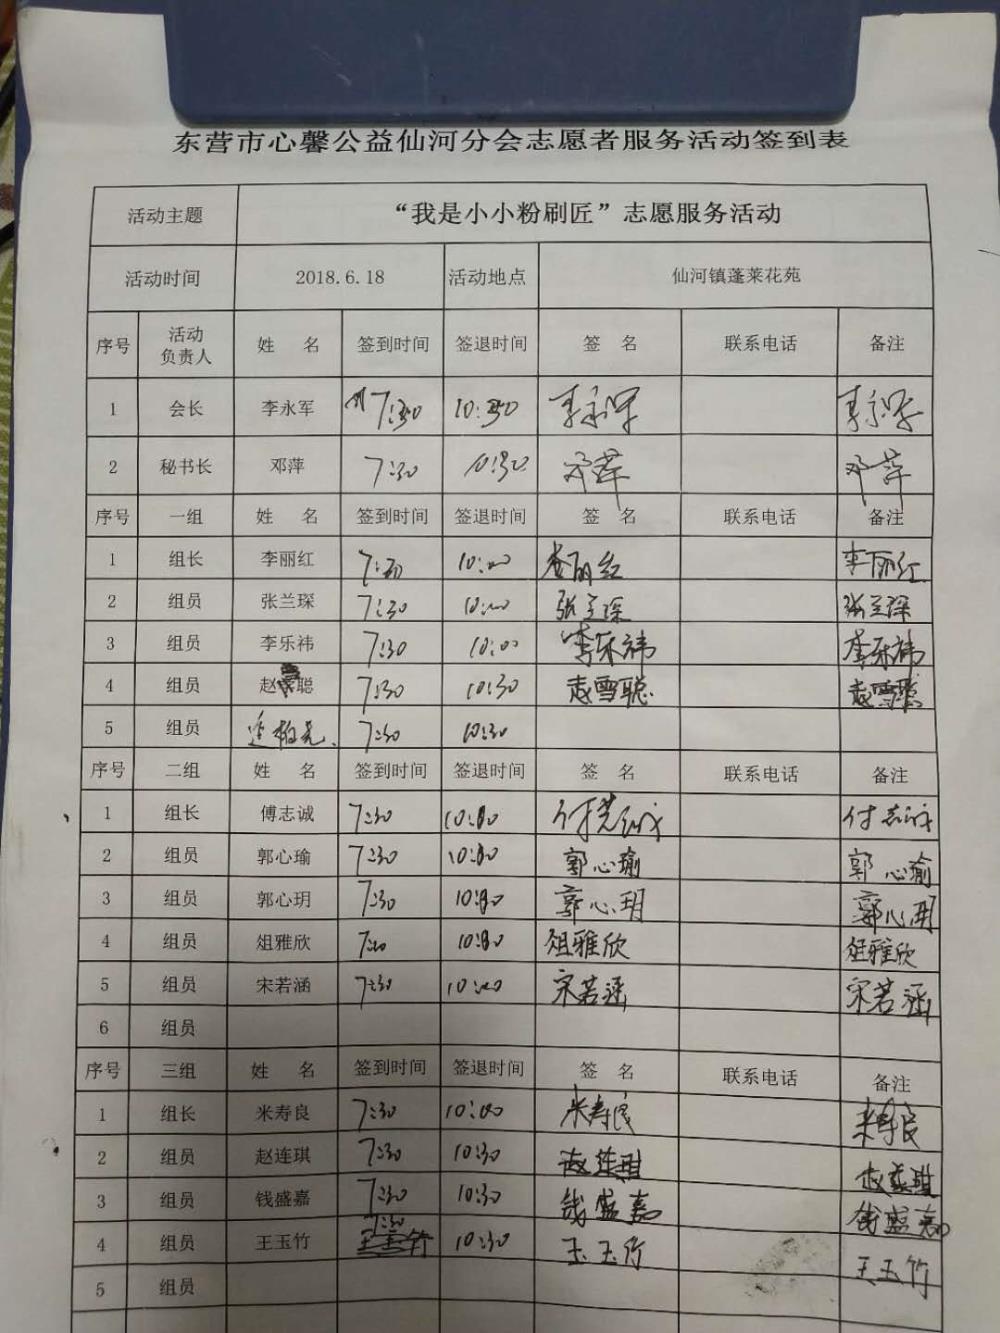 东营市心馨公益仙河分会志愿者服务活动签到表
活动主题 “我是小小粉刷匠”志愿服务活动
活动时间 2018.6.18 活动地点 仙河镇蓬莱花苑
序号 活动负责人 姓 名 签到时间 签退时间 签 名 联系电话 备注
1 会长 李永军 7:30 10:30 李永军 李永军
2 秘书长 邓萍 7:30 10:30 邓萍 邓萍
序号 一组 姓 名 签到时间 签退时间 签 名 联系电话 备注
1 组长 李丽红 7:30 10:00 李丽红 李丽红
2 组员 张兰琛 7:30 10:00 张兰琛 张兰琛
3 组员 李乐祎 7:30 10:00 李乐祎 李乐祎
4 组员 赵雪聪 7:30 10:30 赵雪聪 赵雪聪
5 组员 7:30 10:30
序号 二组 姓 名 签到时间 签退时间 签 名 联系电话 备注
1 组长 傅志诚 7:30 付志诚 付志诚
2 组员 郭心瑜 7:30 郭心瑜 郭心瑜
3 组员 郭心玥 7:30 郭心玥 郭心玥
4 组员 俎雅欣 7:30 俎雅欣 俎雅欣
5 组员 宋若涵 7:30 10:00 宋若涵 宋若涵
6 组员
序号 三组 姓 名 签到时间 签退时间 签 名 联系电话 备注
1 组长 米寿良 7:30 10:00 米寿良 米寿良
2 组员 赵连琪 7:30 10:30 赵连琪 赵连琪
3 组员 钱盛嘉 7:30 10:30 钱盛嘉 钱盛嘉
4 组员 王玉竹 7:30 10:30 王玉竹 王玉竹
5 组员